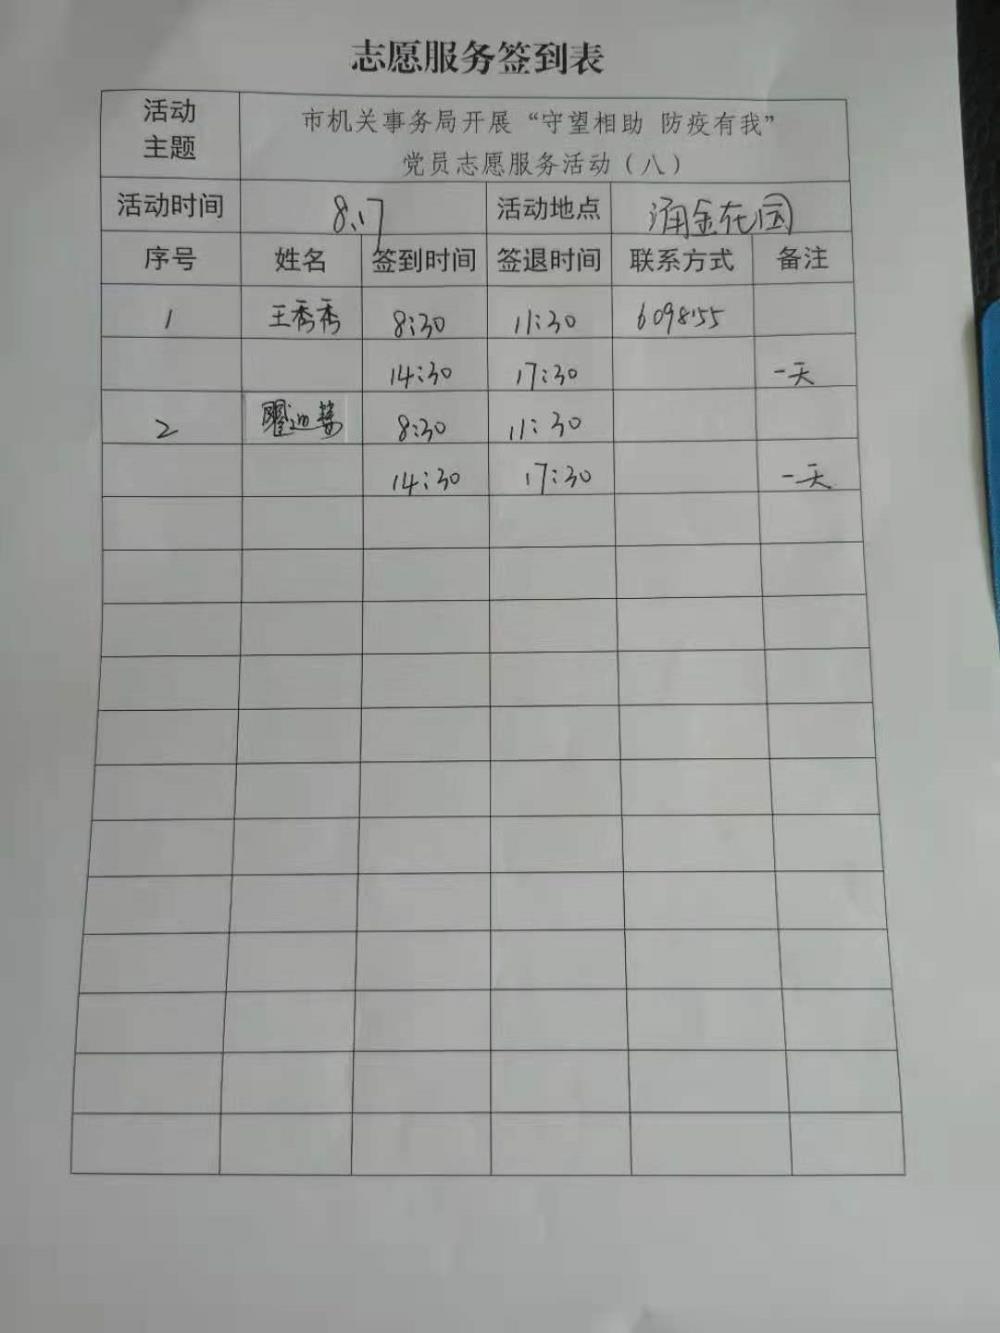 志愿服务签到表
活动主题 市机关事务局开展“守望相助 防疫有我”
党员志愿服务活动（八）
活动时间 8.17 活动地点 涌金花园
序号 姓名 签到时间 签退时间 联系方式 备注
1 王秀秀 8:30 11:30 6098155
14:30 17:30 一天
2 8:30 11:30
14:30 17:30 一天